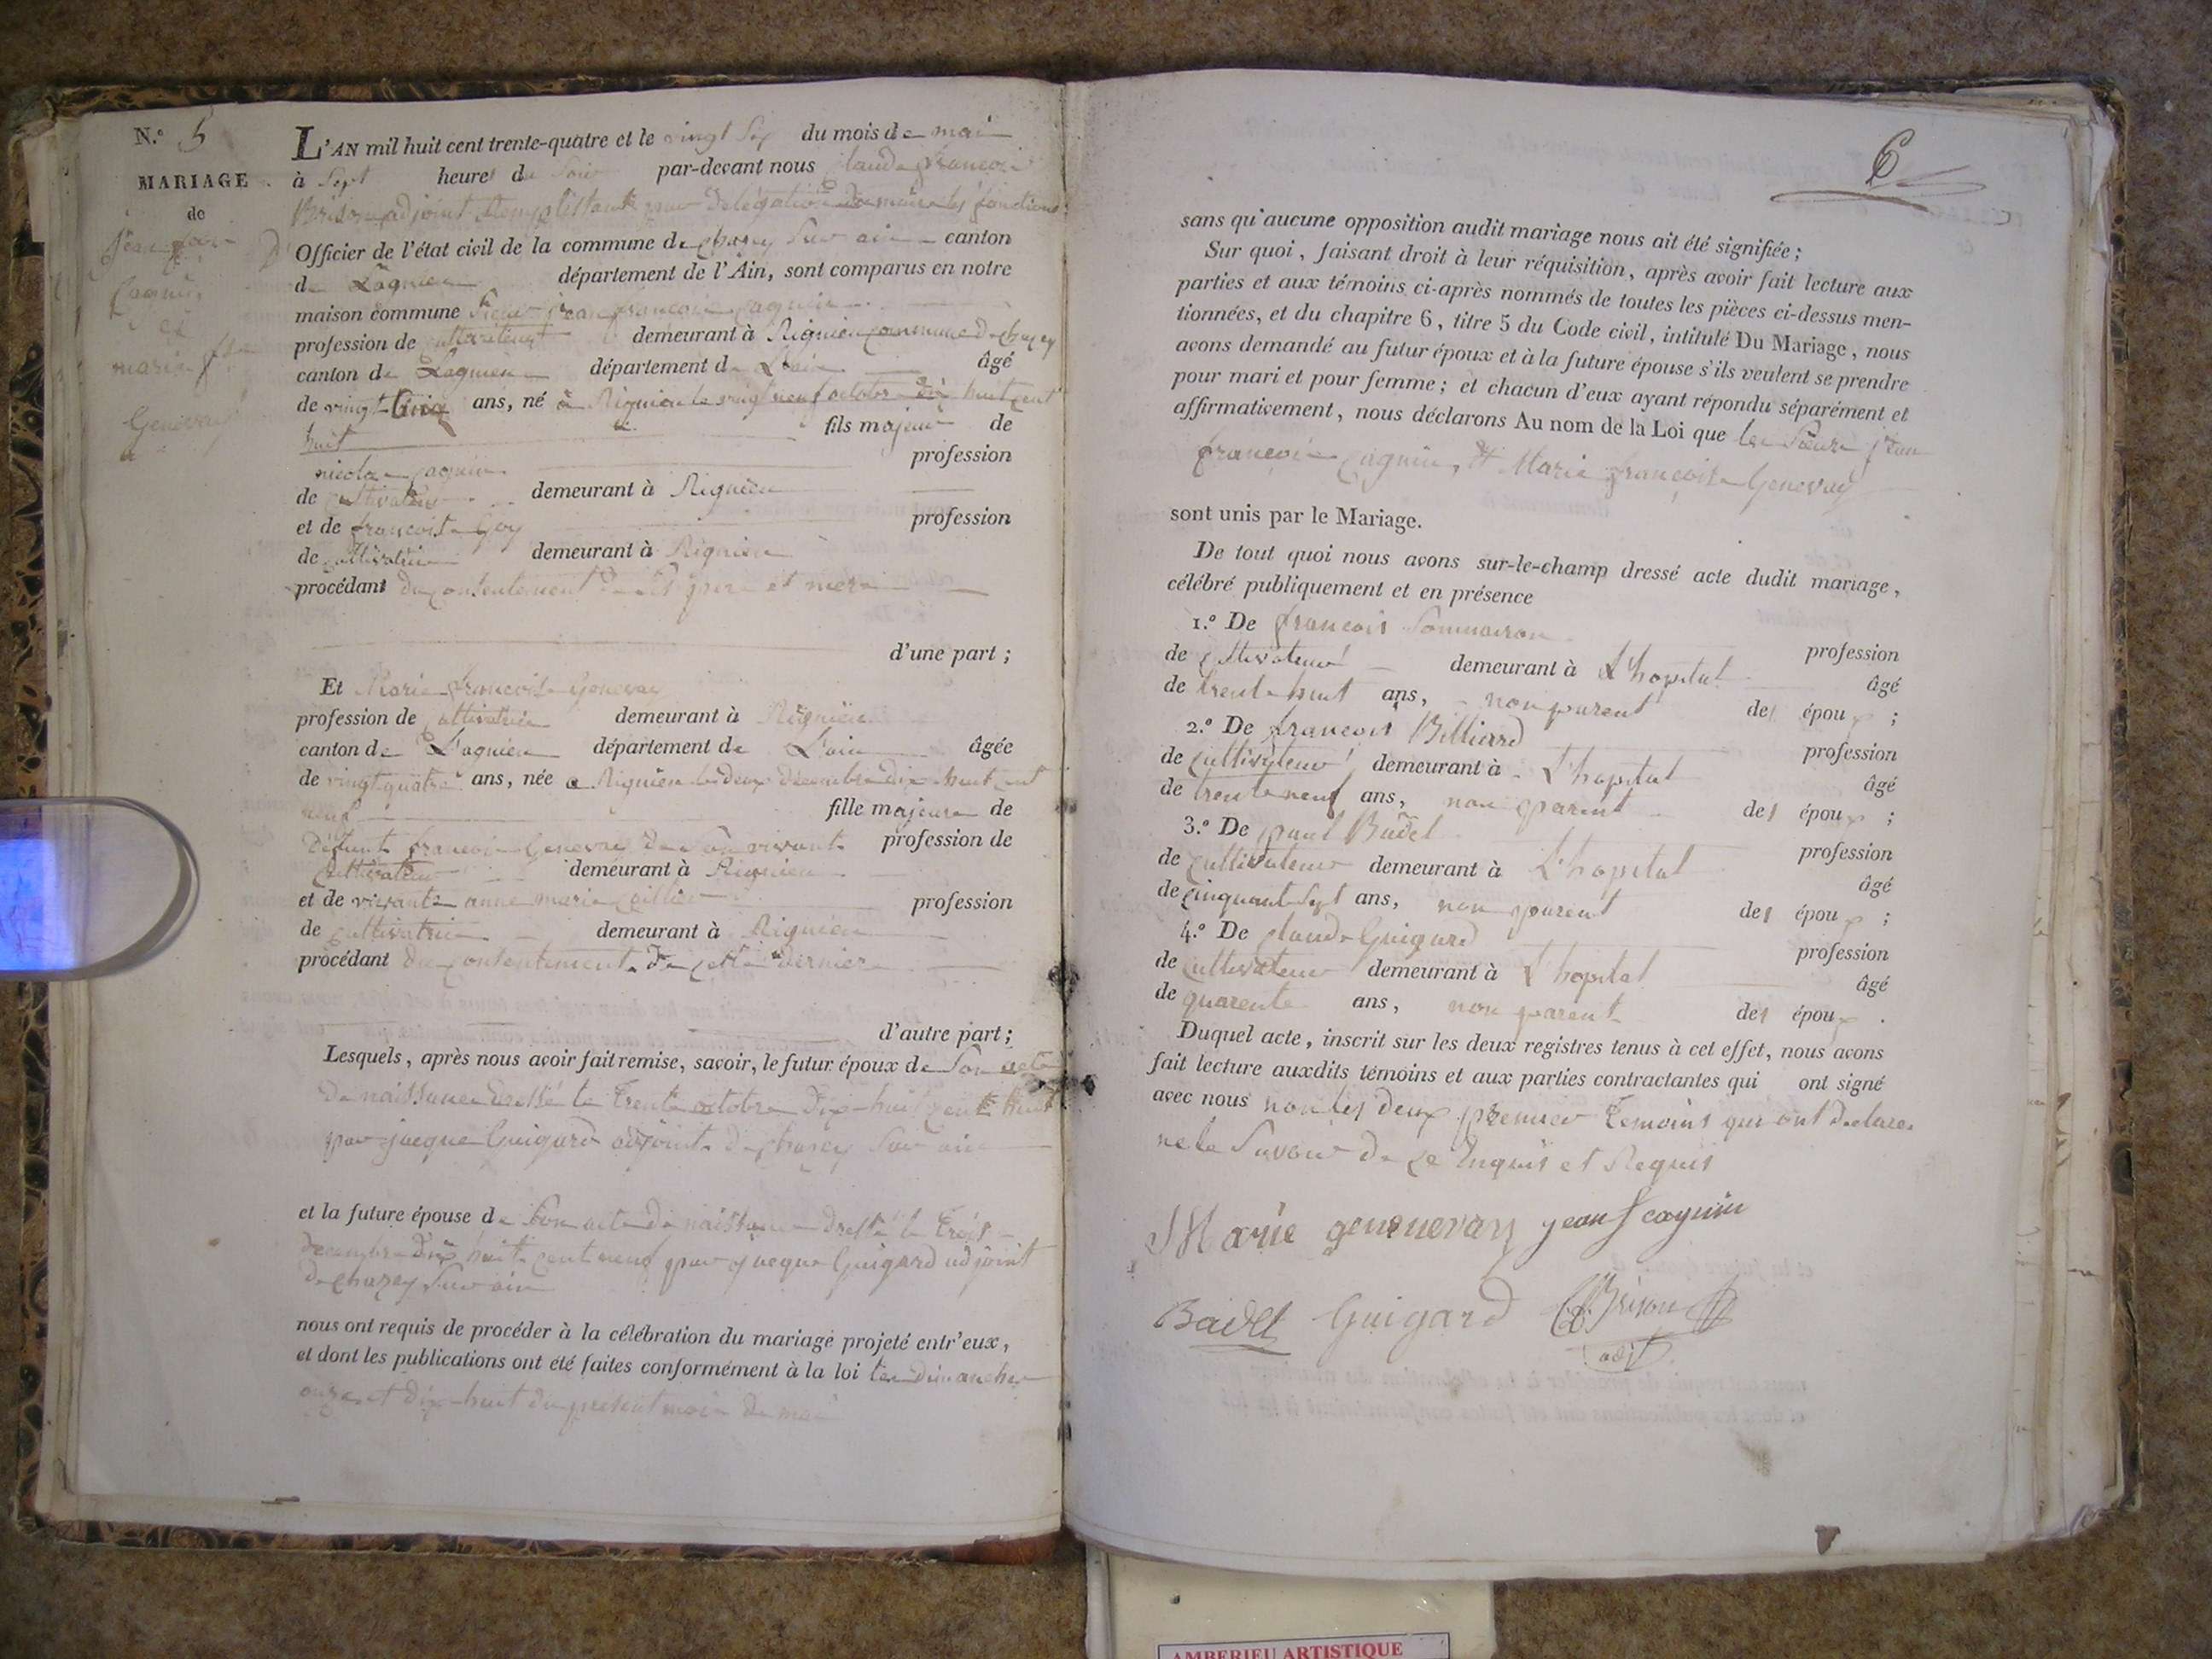 N.º 5
MARIAGE
de
Jean fois
Cagnin
et
marie fse
Genevay
L'AN mil huit cent trente-quatre et le vingt six du mois de mai
à Sept heures du Soir par-devant nous Claude françois
Brison adjoint Remplissant par délégation du maire les fonctions d'
Officier de l'état civil de la commune de chazey Sur ain canton
de Lagnieu département de l'Ain, sont comparus en notre
maison commune Sieur jean francois Cagnin
profession de cultivateur demeurant à Rignieu commune de chazey
canton de Lagnieu département de L'ain âgé
de vingt-Cinq ans, né à Rignieu le vingt neuf octobre dix huit cent
huit fils majeur de
nicolas Cagnin profession
de cultivateur demeurant à Rignieu
et de francoise Goy profession
de cultivatrice demeurant à Rignieu
procédant du consentement de ses pere et mere
d'une part ;
Et Marie francoise Genevay
profession de cultivatrice demeurant à Rignieu
canton de Lagnieu département de L'ain âgée
de vingt quatre ans, née a Rignieu le deux décembre dix huit cent
neuf fille majeure de
Défunt francois Genevay de son vivant profession de
Cultivateur demeurant à Rignieu
et de vivante anne marie profession
de cultivatrice demeurant à Rignieu
procédant du consentement de cette derniere
d'autre part ;
Lesquels, après nous avoir fait remise, savoir, le futur époux de Son acte
de naissance dressé le trente octobre dix-huit cent huit
par jacque Guigard adjoint de chazey Sur ain
et la future épouse de Son acte de naissance dressé le trois
decembre dix huit cent neuf par jacque Guigard adjoint
de chazey Sur ain
nous ont requis de procéder à la célébration du mariage projeté entr'eux,
et dont les publications ont été faites conformément à la loi les dimanches
onze et dix-huit du présent mois de mai
6
sans qu'aucune opposition audit mariage nous ait été signifiée ;
Sur quoi, faisant droit à leur réquisition, après avoir fait lecture aux
parties et aux témoins ci-après nommés de toutes les pièces ci-dessus men-
tionnées, et du chapitre 6, titre 5 du Code civil, intitulé Du Mariage, nous
avons demandé au futur époux et à la future épouse s'ils veulent se prendre
pour mari et pour femme ; et chacun d'eux ayant répondu séparément et
affirmativement, nous déclarons Au nom de la Loi que les Sieurs jean
françois Cagnin, et Marie françoise Genevay
sont unis par le Mariage.
De tout quoi nous avons sur-le-champ dressé acte dudit mariage,
célébré publiquement et en présence
1.º De francois profession
de cultivateur demeurant à L'hopital âgé
de trente huit ans, non parent des époux ;
2.º De francois Billiard profession
de cultivateur demeurant à L'hopital âgé
de trente neuf ans, non parent des époux ;
3.º De paul Badet profession
de cultivateur demeurant à L'hopital âgé
de cinquante sept ans, non parent des époux ;
4.º De claude Guigard profession
de cultivateur demeurant à L'hopital âgé
de quarente ans, non parent des époux .
Duquel acte, inscrit sur les deux registres tenus à cet effet, nous avons
fait lecture auxdits témoins et aux parties contractantes qui ont signé
avec nous non les deux premier temoins qui ont declarer
ne le Savoir de ce Enquis et Requis
Marie genenevay jean f cagnin
Badet Guigard Brison
adjt
AMBERIEU ARTISTIQUE